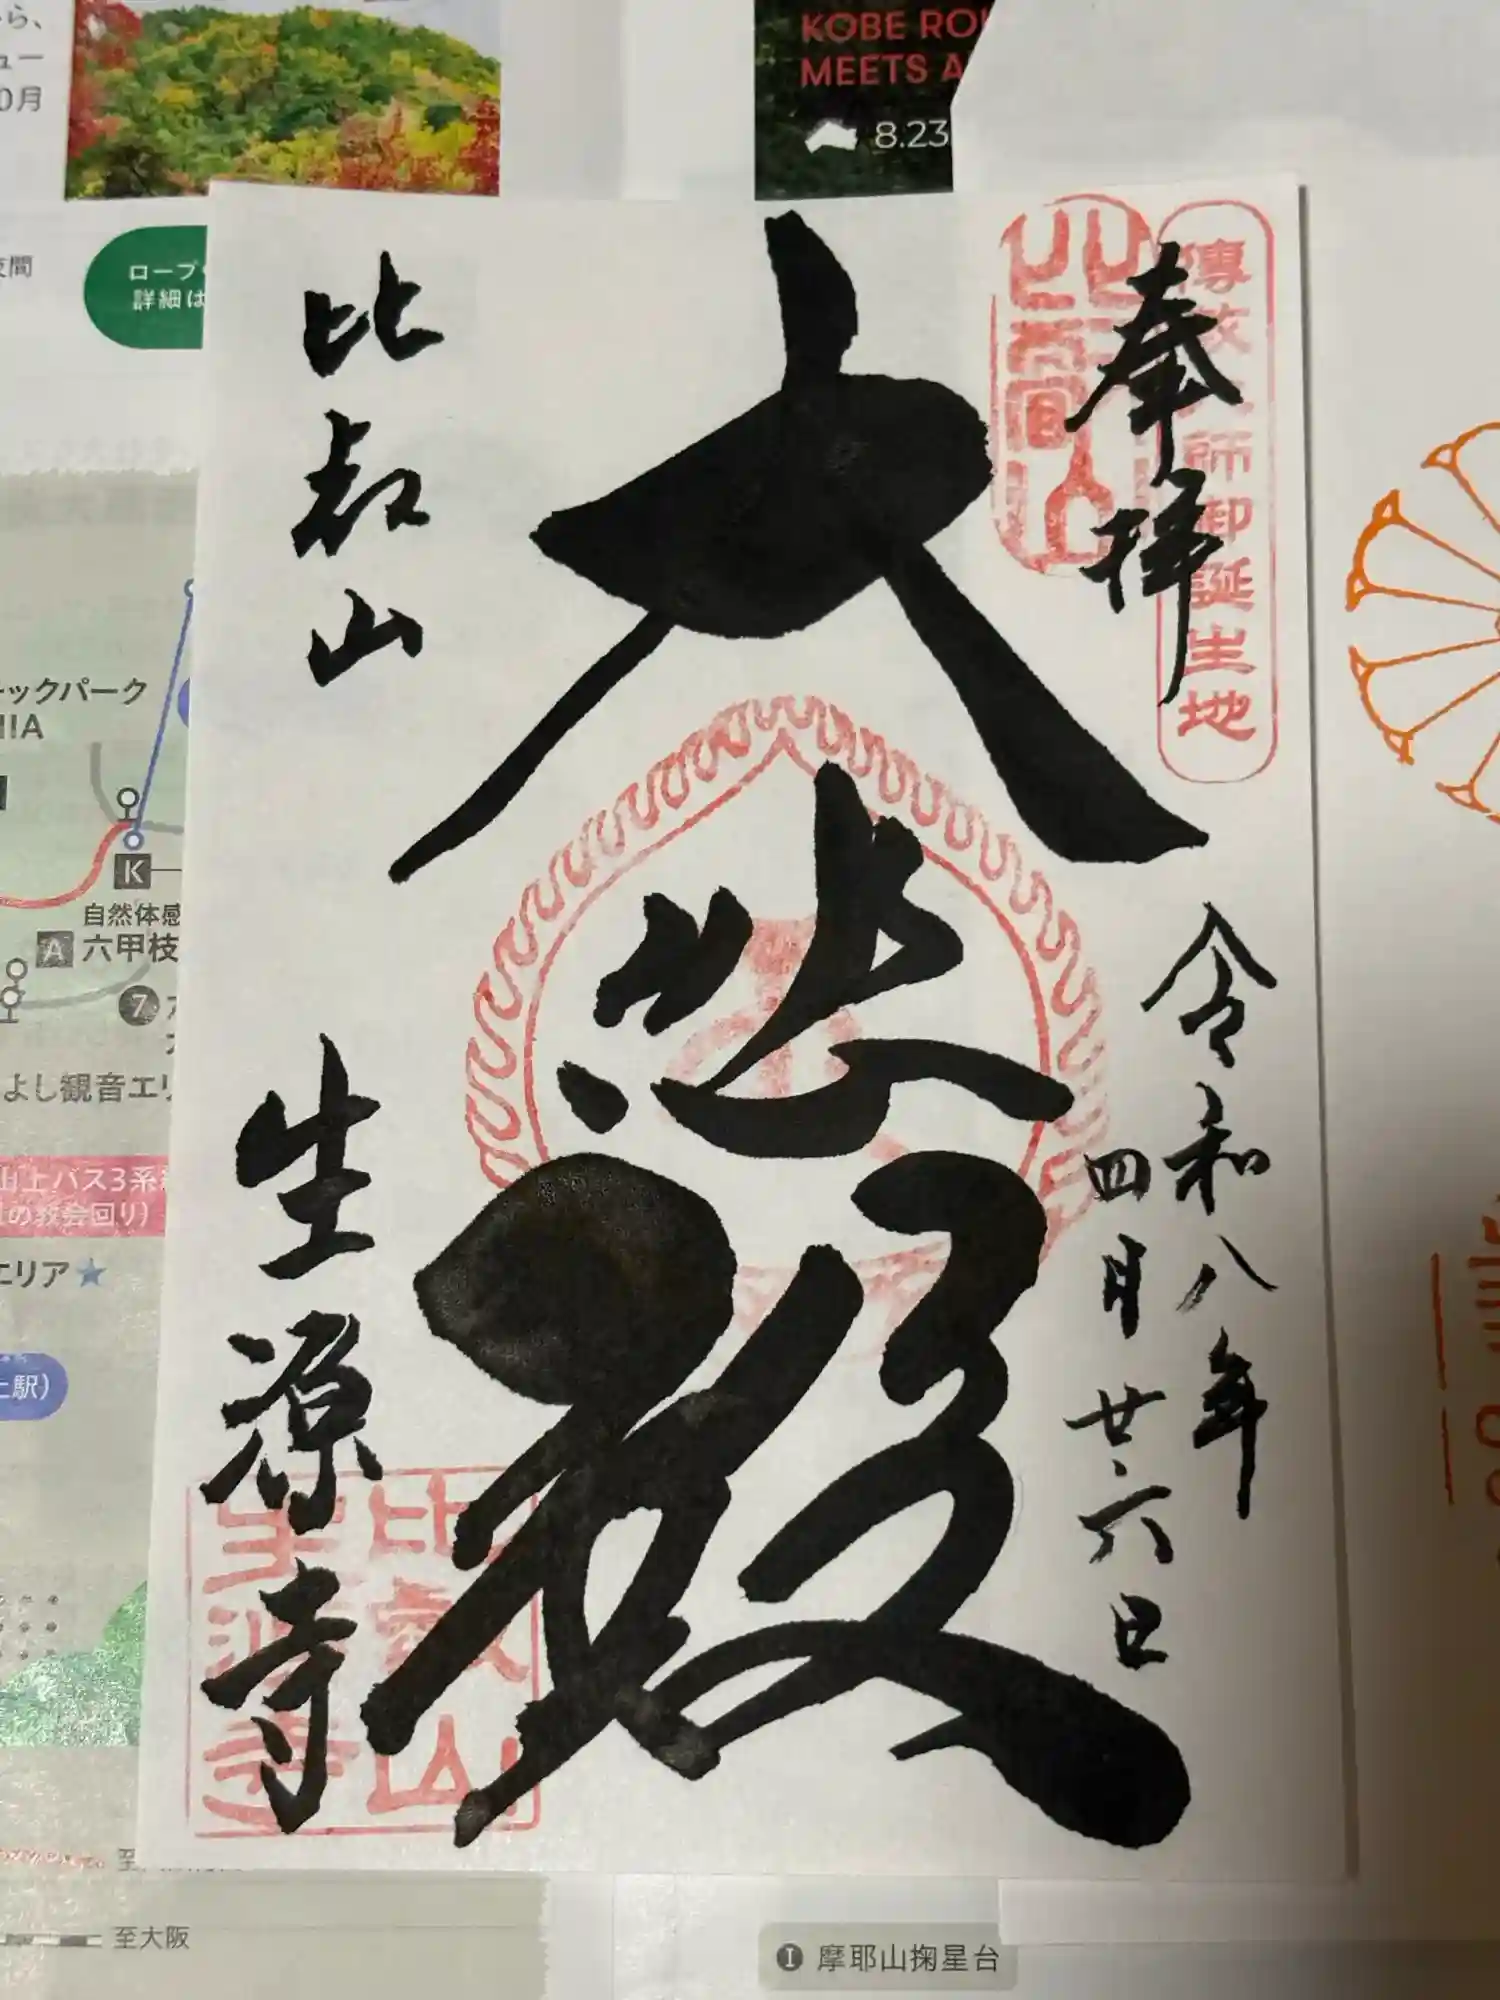 から、
ュー
0月
KOBE RO
MEETS A
8.23
夜間
ロープ
詳細は
奉拝
傳教大師御誕生地
大悲殿
比叡山
生源寺
令和八年
四月廿六日
比叡山
生源寺
ックパーク
K
自然体感
A 六甲枝
7
よし観音エリ
山上バス3系
の教会回り)
エリア★
上駅)
至大阪
I 摩耶山掬星台